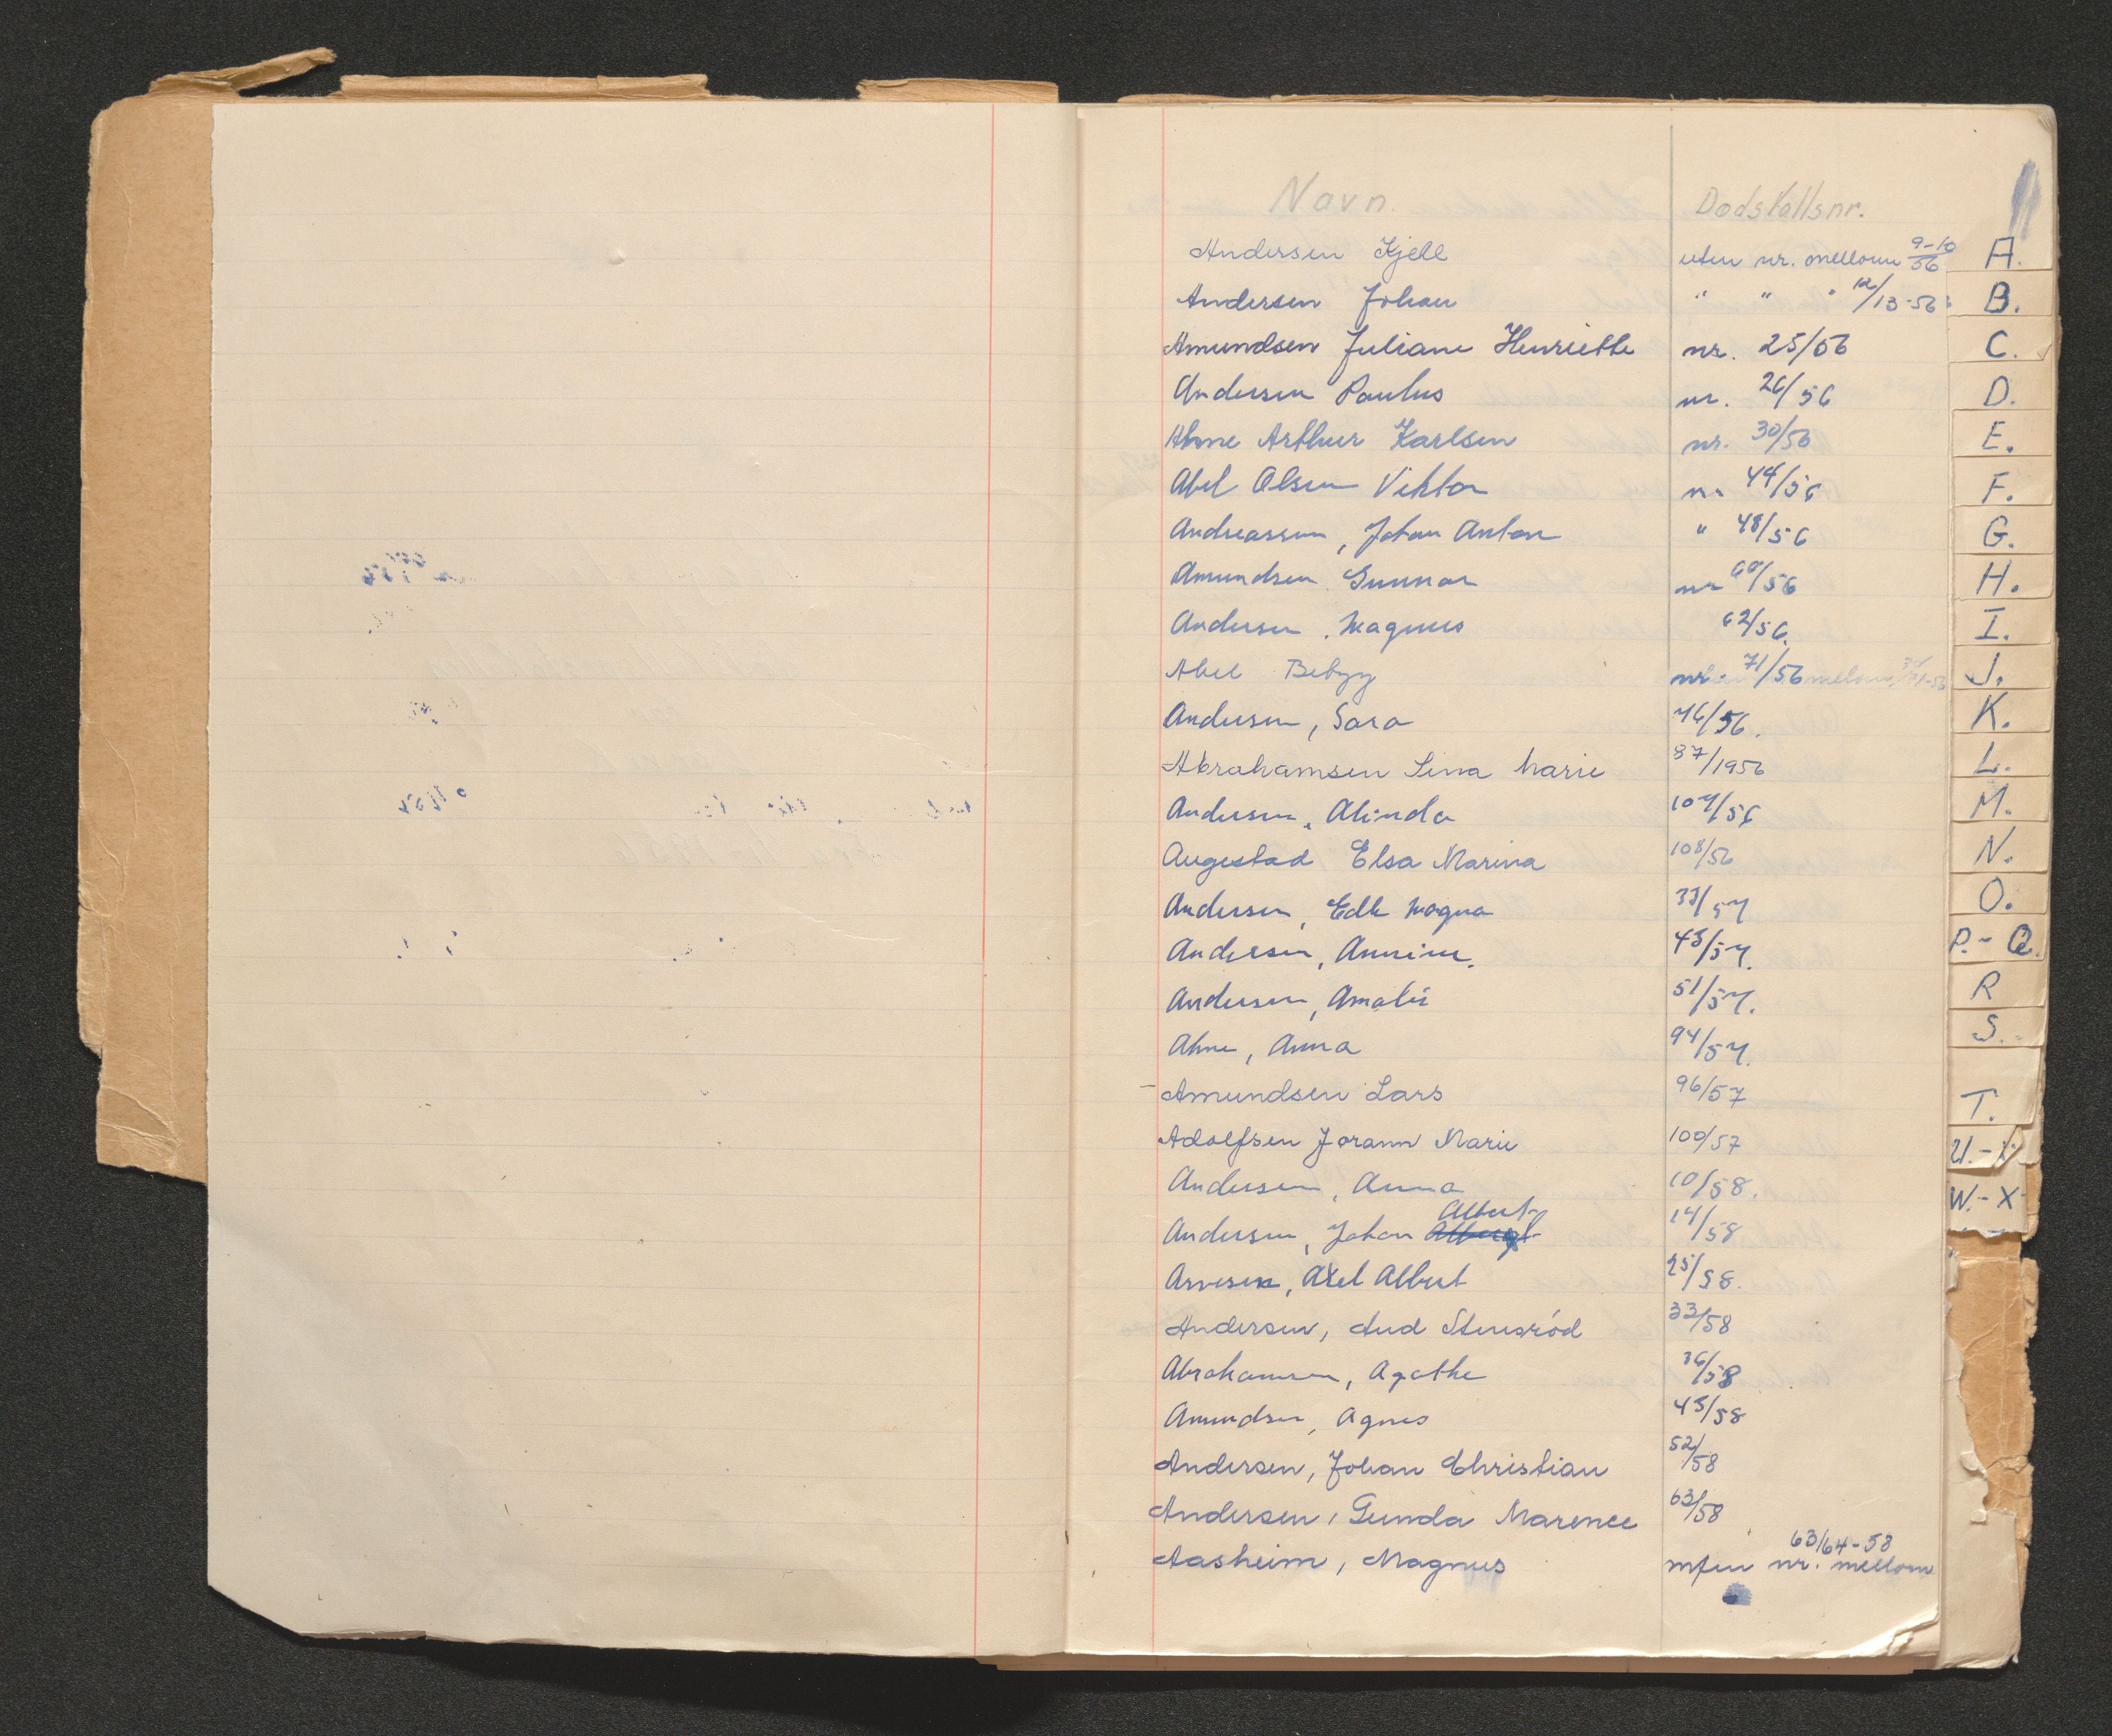 Navn. Dødsfallsnr.
Andersen Kjell uten nr. mellom 9-10/56
Andersen Johan " " " 12/13-56
Amundsen Juliane Henriette nr. 25/56
Andersen Paulus nr. 26/56
Ahne Arthur Karlsen nr. 30/56
Abel Olsen Viktor nr 44/56
Andreassen, Johan Anton " 48/56
Amundsen Gunnar nr 60/56
Andersen, Magnus 62/56.
Abel nr 71/56 mellom
Andersen, Sara 76/56.
Abrahamsen Lina Marie 87/1956
Andersen, Alinda 107/56
Augestad Elsa Marina 108/56
Andersen, Magna 33/57
Andersen, Annine. 43/57.
Andersen, Amalie 51/57.
Ahne, Anna 94/57.
- Amundsen Lars 96/57
Adolfsen Jorann Marie 100/57
Andersen, Anna 10/58.
Albert
Andersen, Johan 14/58
Arvesen, Axel Albert 25/58.
Andersen, Aud Stensrød 33/58
Abrahamsen, Agathe 36/58
Amundsen, Agnes 43/58
Andersen, Johan Christian 52/58
Andersen, Gunda Marence 63/58
63/64-58
Aasheim, Magnus uten nr. mellom
A.
B.
C.
D.
E.
F.
G.
H.
I.
J.
K.
L.
M.
N.
O.
P.-Q.
R
S.
T.
U.-V
W.-X